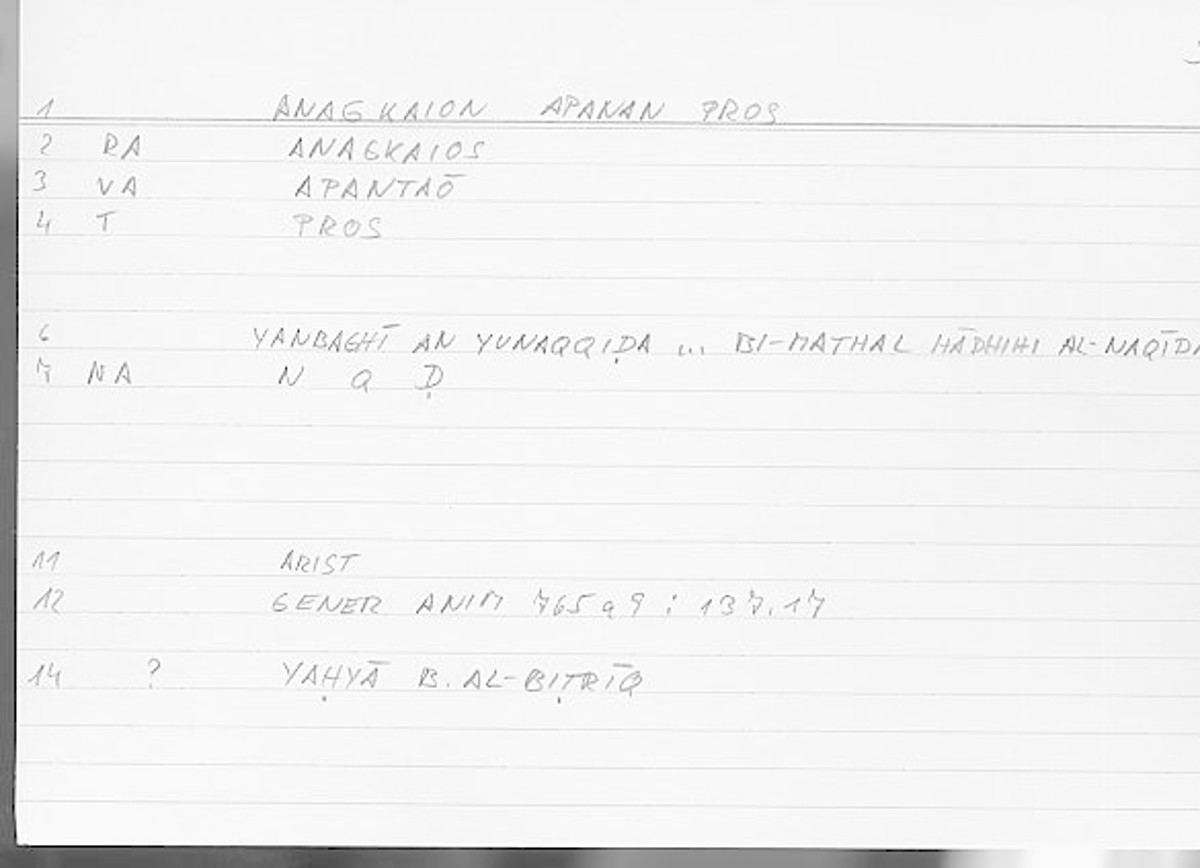 1 ANAGKAION APANAN PROS
2 RA ANAGKAIOS
3 VA APANTAŌ
4 T PROS
6 YANBAGHĪ AN YUNAQQIḌA ... BI-MATHAL HĀDHIHI AL-NAQĪḌA
7 NA N Q Ḍ
11 ARIST
12 GENER ANIM 765a9 : 137.17
14 ? YAḤYĀ B. AL-BIṬRĪQ